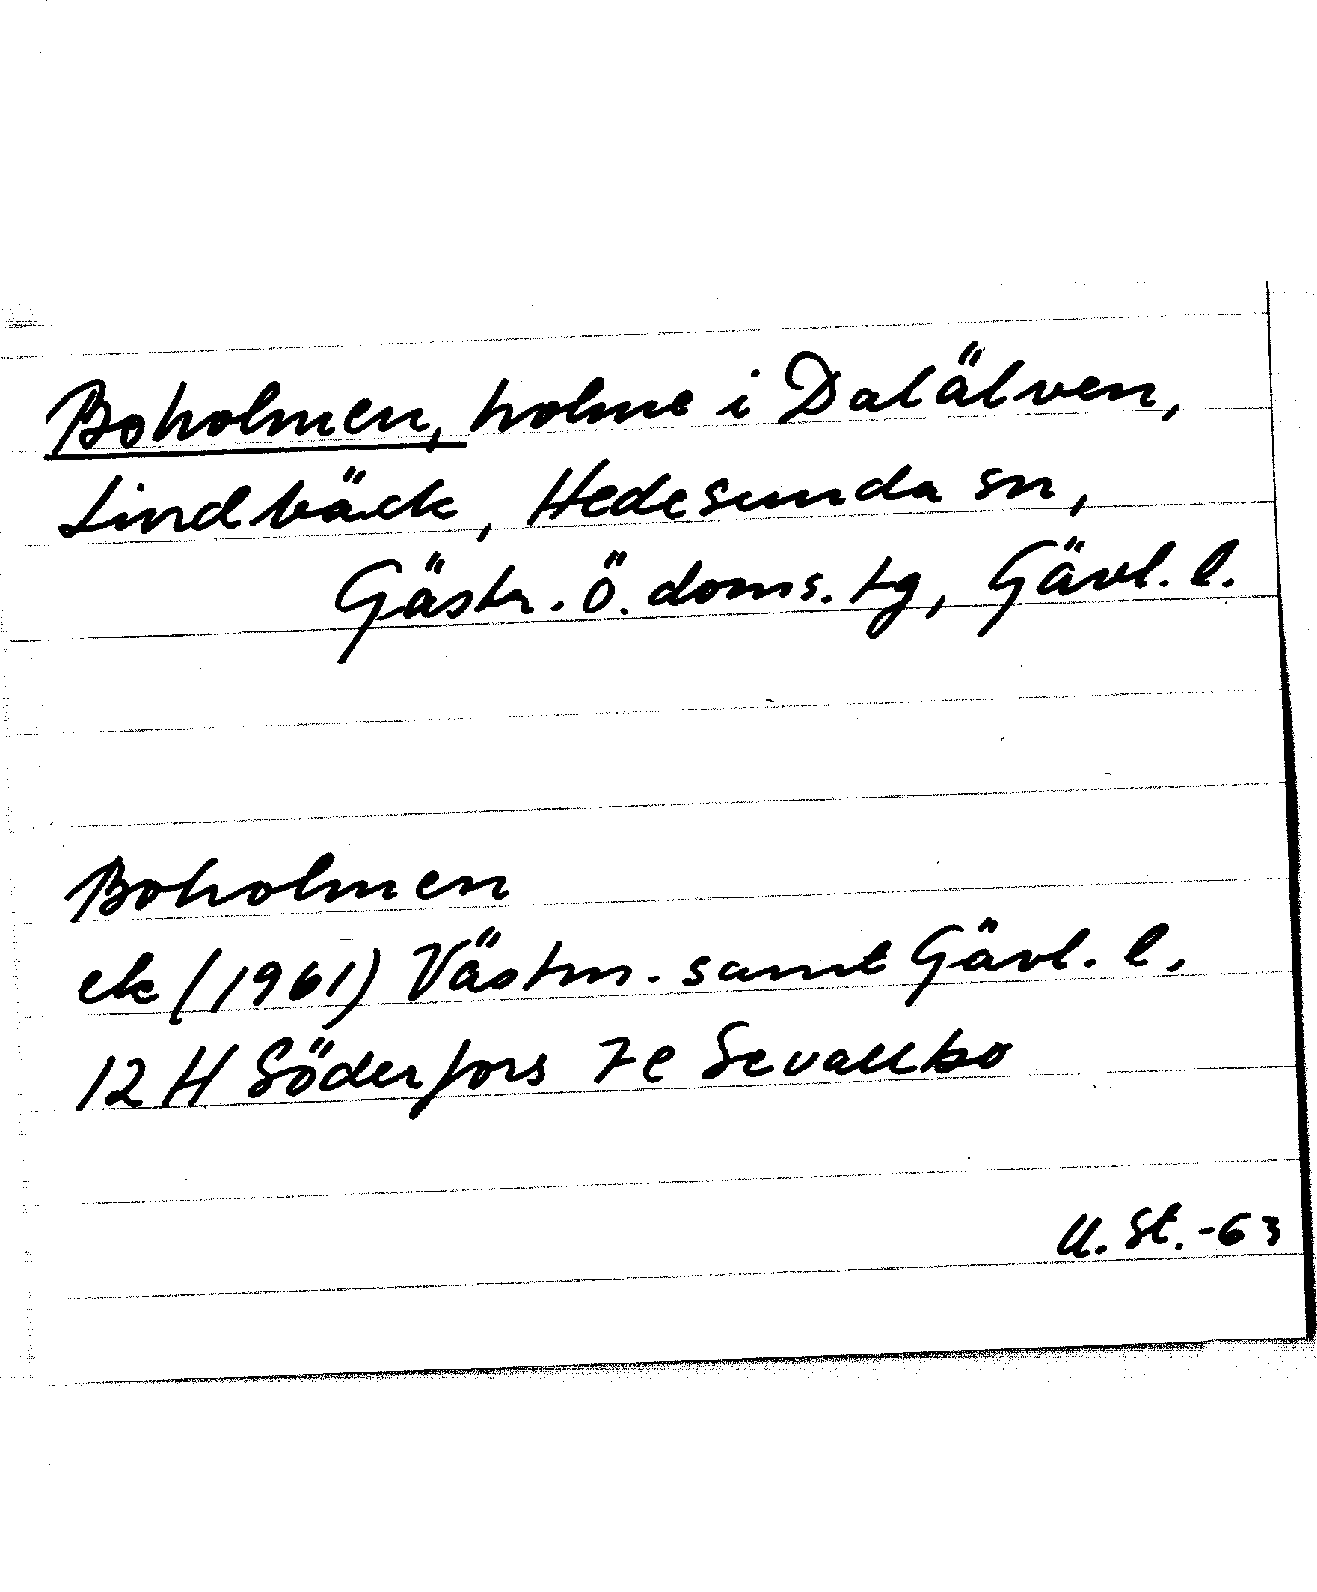 Boholmen, holme i Dalälven,
Lindbäck, Hedesunda sn,
Gästr. Ö. doms. tg, Gävl. l.
Boholmen
ek (1961) Västm. samt Gävl. l.
12 H Söderfors 7e Sevallbo
U. St. -63